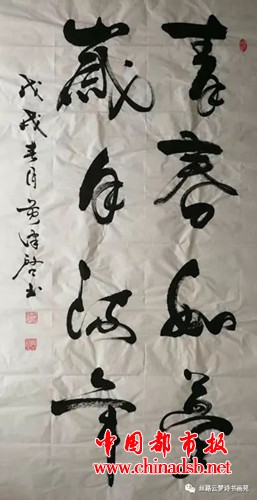 青春如夢
歲月流年
戊戌春月
书
中国都市报
www.chinadsb.net
丝路云梦诗书画苑